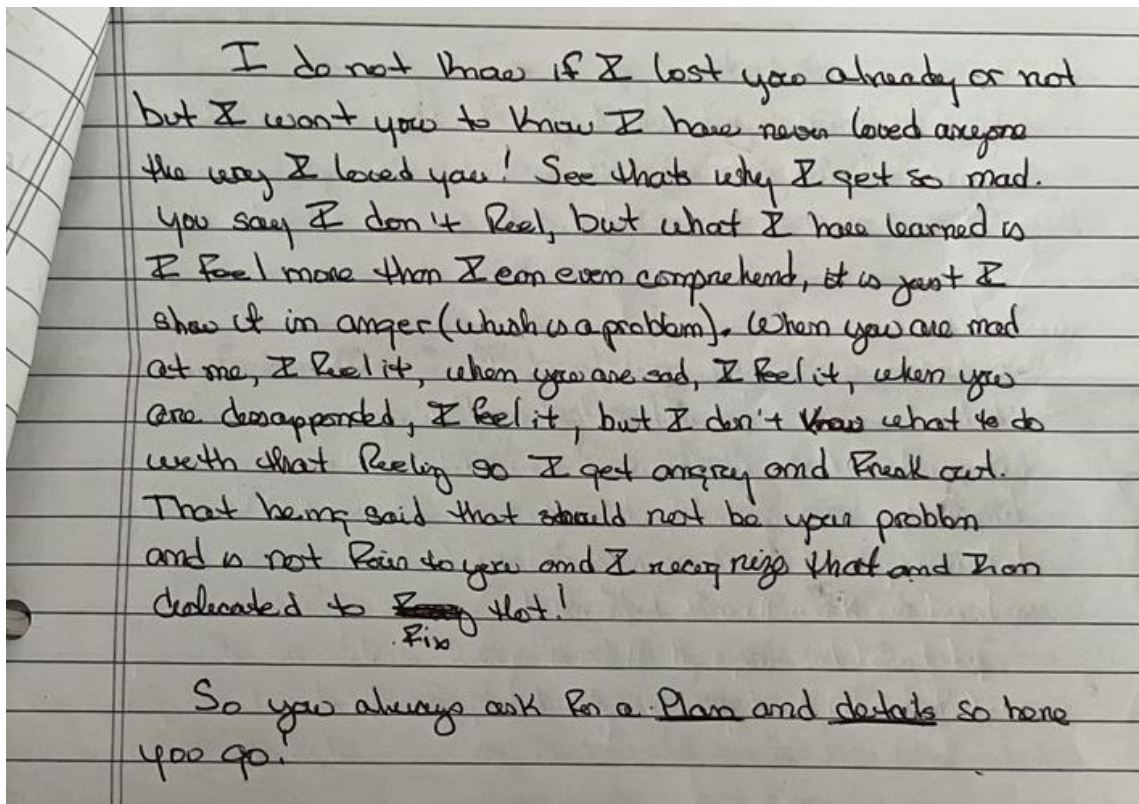 I do not know if I lost you already or not
but I want you to know I have never loved anyone
the way I loved you! See thats why I get so mad.
you say I don't feel, but what I have learned is
I feel more than I can even comprehend, it is just I
show it in anger (which is a problem). When you are mad
at me, I feel it, when you are sad, I feel it, when you
are dissapponded, I feel it, but I don't know what to do
with that feeling so I get angry and freak out.
That being said that should not be your problem
and is not fair to you and I recognize that and I am
dedicated to fix that!
So you always ask for a Plan and details so here
you go!